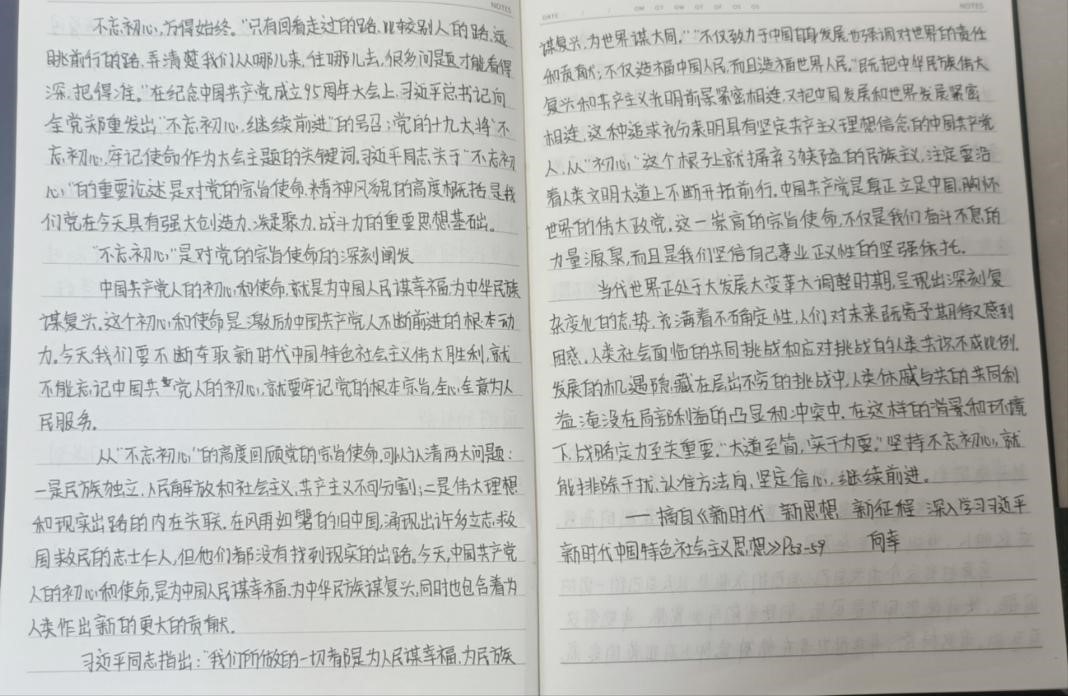 NOTES
不忘初心，方得始终。"只有回看走过的路、比较别人的路、远
眺前行的路，弄清楚我们从哪儿来、往哪儿去，很多问题才能看得
深、把得准。"在纪念中国共产党成立95周年大会上，习近平总书记向
全党郑重发出"不忘初心、继续前进"的号召；党的十九大将"不
忘初心，牢记使命"作为大会主题的关键词。习近平同志关于"不忘初
心"的重要论述是对党的宗旨使命、精神风貌的高度概括，是我
们党在今天具有强大创造力、凝聚力、战斗力的重要思想基础。
"不忘初心"是对党的宗旨使命的深刻阐发
中国共产党人的初心和使命，就是为中国人民谋幸福，为中华民族
谋复兴。这个初心和使命是激励中国共产党人不断前进的根本动
力。今天我们要不断夺取新时代中国特色社会主义伟大胜利，就
不能忘记中国共产党人的初心，就要牢记党的根本宗旨，全心全意为人
民服务。
从"不忘初心"的高度回顾党的宗旨使命，可以认清两大问题：
一是民族独立、人民解放和社会主义、共产主义不可分割；二是伟大理想
和现实出路的内在关联。在风雨如磐的旧中国，涌现出许多立志救
国救民的志士仁人，但他们都没有找到现实的出路。今天，中国共产党
人的初心和使命，是为中国人民谋幸福，为中华民族谋复兴，同时也包含着为
人类作出新的更大的贡献。
习近平同志指出："我们所做的一切都是为人民谋幸福，为民族
DATE
NOTES
谋复兴，为世界谋大同。""不仅致力于中国自身发展，也强调对世界的责任
和贡献；不仅造福中国人民，而且造福世界人民。"既把中华民族伟大
复兴和共产主义光明前景紧密相连，又把中国发展和世界发展紧密
相连，这种追求充分表明具有坚定共产主义理想信念的中国共产党
人，从"初心"这个根子上就摒弃了狭隘的民族主义，注定要沿
着人类文明大道上不断开拓前行。中国共产党是真正立足中国、胸怀
世界的伟大政党。这一崇高的宗旨使命，不仅是我们奋斗不息的
力量源泉，而且是我们坚信自己事业正义性的坚强依托。
当代世界正处于大发展大变革大调整时期，呈现出深刻复
杂变化的态势，充满着不确定性，人们对未来既寄予期待又感到
困惑。人类社会面临的共同挑战和应对挑战的人类共识不成比例。
发展的机遇隐藏在层出不穷的挑战中，人类休戚与共的共同利
益，淹没在局部利益的凸显和冲突中。在这样的背景和环境
下，战略定力至关重要。"大道至简，实干为要。"坚持不忘初心，就
能排除干扰、认准方向，坚定信心，继续前进。
——摘自《新时代 新思想 新征程 深入学习习近平
新时代中国特色社会主义思想》P53-59